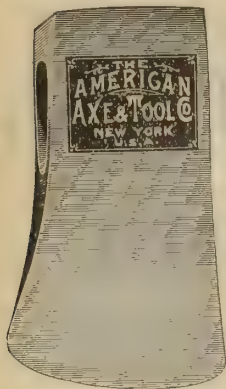 THE
AMERICAN
AXE & TOOL CO
NEW YORK
U.S.A.